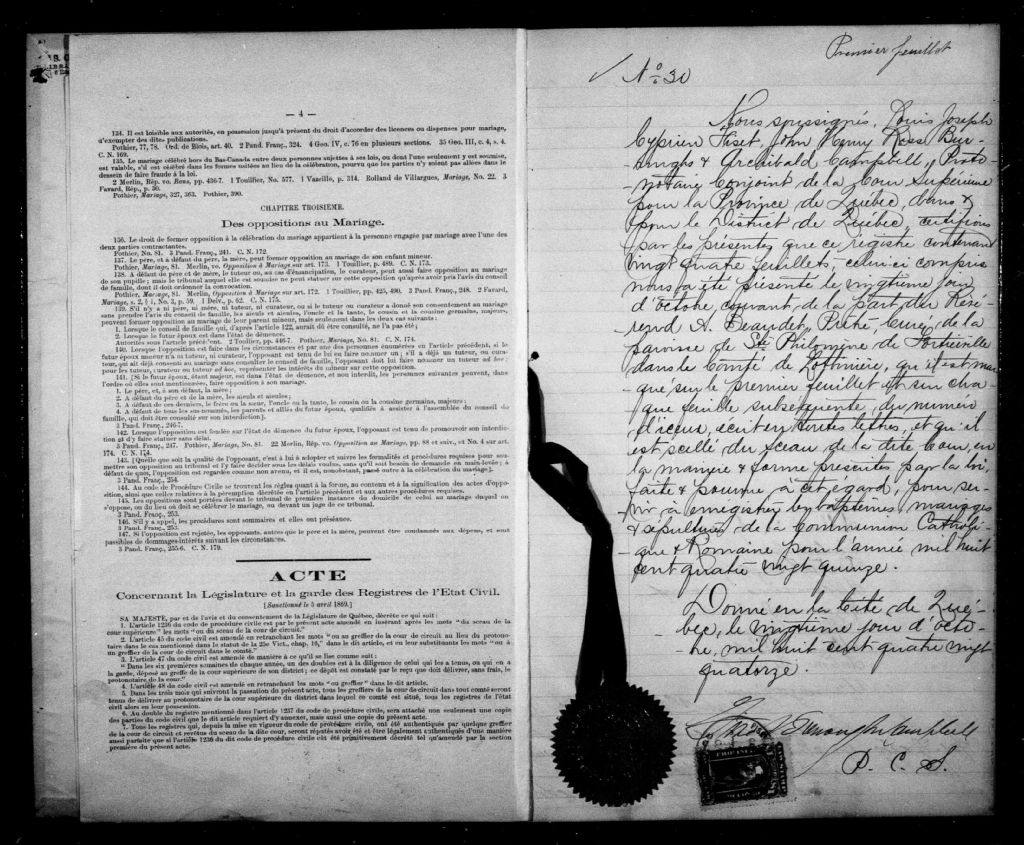 — 4 —
134. Il est loisible aux autorités, en possession jusqu'à présent du droit d'accorder des licences ou dispenses pour mariage,
d'exempter des dites publications.
Pothier, 77, 78. Ord. de Blois, art. 40. 2 Pand. Franç., 324. 4 Geo. IV, c. 76 en plusieurs sections. 35 Geo. III, c. 4, s. 4.
C. N. 169.
135. Le mariage célébré hors du Bas-Canada entre deux personnes sujettes à ses lois, ou dont l'une seulement y est soumise,
est valable, s'il est célébré dans les formes usitées au lieu de la célébration, pourvu que les parties n'y soient pas allées dans le
dessein de faire fraude à la loi.
2 Merlin, Rép. vo. Bans, pp. 436-7. 1 Toullier, No. 577. 1 Vazeille, p. 314. Rolland de Villargues, Mariage, No. 22. 3
Favard, Rép., p. 50.
Pothier, Mariage, 327, 363. Pothier, 390.
CHAPITRE TROISIÈME.
Des oppositions au Mariage.
136. Le droit de former opposition à la célébration du mariage appartient à la personne engagée par mariage avec l'une des
deux parties contractantes.
Pothier, No. 81. 3 Pand. Franç., 241. C. N. 172
137. Le père, et à défaut du père, la mère, peut former opposition au mariage de son enfant mineur.
Pothier, Mariage, 81. Merlin, vo. Opposition à Mariage sur art. 173. 1 Toullier, p. 489. C. N. 173.
138. A défaut de père et de mère, le tuteur ou, au cas d'émancipation, le curateur, peut aussi faire opposition au mariage
de son pupille; mais le tribunal auquel elle est soumise ne peut statuer sur cette opposition qu'après avoir pris l'avis du conseil
de famille, dont il doit ordonner la convocation.
Pothier, Mariage, 81. Merlin, vo. Opposition à Mariage sur art. 172. 1 Toullier, pp. 425, 490. 3 Pand. Franç., 248. 2 Favard,
Mariage, s. 2, § 1, No. 3, p. 59. 1 Delv., p. 62. C. N. 175.
139. S'il n'y a ni père, ni mère, ni tuteur, ni curateur, ou si le tuteur ou curateur a donné son consentement au mariage
sans prendre l'avis du conseil de famille, les aïeuls et aïeules, l'oncle et la tante, le cousin et la cousine germains, majeurs,
peuvent former opposition au mariage de leur parent mineur, mais seulement dans les deux cas suivants:
1. Lorsque le conseil de famille qui, d'après l'article 122, aurait dû être consulté, ne l'a pas été;
2. Lorsque le futur époux est dans l'état de démence.
Autorités sous l'article précé'ent. 2 Toullier, pp. 446-7. Pothier, Mariage, No. 81. C. N. 174.
140. Lorsque l'opposition est faite dans les circonstances et par une des personnes énumérées en l'article précédent, si le
futur époux mineur n'a ni tuteur, ni curateur, l'opposant est tenu de lui en faire nommer un; s'il a déjà un tuteur, ou cura-
teur, qui ait déjà consenti au mariage sans consulter le conseil de famille, l'opposant doit lui faire nommer un tuteur ad hoc
pour les tuteur, curateur ou tuteur ad hoc, représenter les intérêts du mineur sur cette opposition.
141. [Si le futur époux, étant majeur, est dans l'état de démence, et non interdit, les personnes suivantes peuvent, dans
l'ordre où elles sont mentionnées, faire opposition à son mariage.
1. Le père, et, à son défaut, la mère;
2. A défaut du père et de la mère, les aïeuls et aïeules;
3. A défaut de ces derniers, le frère ou la sœur, l'oncle ou la tante, le cousin ou la cousine germains, majeurs;
4. A défaut de tous les sus-nommés, les parents et alliés du futur époux, qualifiés à assister à l'assemblée du conseil de
famille, qui doit être consulté sur son interdiction].
3 Pand. Franç., 246-7.
142. Lorsque l'opposition est fondée sur l'état de démence du futur époux, l'opposant est tenu de promouvoir son interdic-
tion et d'y faire statuer sans délai.
3 Pand. Franç., 247. Pothier, Mariage, No. 81. 22 Merlin, Rép. vo. Opposition au Mariage, pp. 88 et suiv., et No. 4 sur art.
174. C. N. 174.
143. [Quelle que soit la qualité de l'opposant, c'est à lui à adopter et suivre les formalités et procédures requises pour sou-
mettre son opposition au tribunal et l'y faire décider sous les délais voulus, sans qu'il soit besoin de demande en main-levée; à
défaut de quoi, l'opposition est regardée comme non avenu, et il est, nonobstant, passé outre à la célébration du mariage].
3 Pand. Franç., 254.
144. Au code de Procédure Civile se trouvent les règles quant à la forme, au contenu et à la signification des actes d'oppo-
sition, ainsi que celles relatives à la péremption décrétée en l'article précédent et aux autres procédures requises.
145. Les oppositions sont portées devant le tribunal de première instance du domicile de celui au mariage duquel on
s'oppose, ou du lieu où doit se célébrer le mariage, ou devant un juge de ce tribunal.
3 Pand. Franç., 253.
146. S'il y a appel, les procédures sont sommaires et elles ont préséance.
3 Pand. Franç., 253.
147. Si l'opposition est rejetée, les opposants, autres que le père et la mère, peuvent être condamnés aux dépens, et sont
passibles de dommages-intérêts suivant les circonstances.
3 Pand. Franç., 255-6. C. N. 179.
ACTE
Concernant la Législature et la garde des Registres de l'Etat Civil.
[Sanctionné le 5 avril 1869.]
SA MAJESTE, par et de l'avis et du consentement de la Législature de Québec, décrète ce qui suit:
1. L'article 1236 du code de procédure civile est par le présent acte amendé en insérant après les mots "du sceau de la
cour supérieure" les mots "ou du sceau de la cour de circuit."
2. L'article 45 du code civil est amendé en retranchant les mots "ou au greffier de la cour de circuit au lieu du protono-
taire dans le cas mentionné dans le statut de la 25e Vict., chap. 16," dans le dit article, et en leur substituant les mots "ou à
un greffier de la cour de circuit dans le comté."
3. L'article 47 du code civil est amendé de manière à ce qu'il se lise comme suit:
"Dans les six premières semaines de chaque année, un des doubles est à la diligence de celui qui les a tenus, ou qui en a
la garde, déposé au greffe de la cour supérieure de son district; ce dépôt est constaté par le reçu que doit délivrer, sans frais, le
protonotaire de la cour."
4. L'article 48 du code civil est amendé en retranchant les mots "ou greffier" dans le dit article.
5. Dans les trois mois qui suivront la passation du présent acte, tous les greffiers de la cour de circuit dans tout comté seront
tenus de délivrer au protonotaire de la cour supérieure du district dans lequel ce comté est situé, tous les registres de l'état
civil alors en leur possession.
6. Au double du registre mentionné dans l'article 1237 du code de procédure civile, sera attaché non seulement une copie
des parties du code civil que le dit article requiert d'y annexer, mais aussi une copie du présent acte.
7. Tous les registres qui, depuis la mise en vigueur du code de procédure civile, ont été authentiqués par quelque greffier
de la cour de circuit et revêtus du sceau de la dite cour, seront réputés avoir été et être légalement authentiqués d'une manière
aussi parfaite que si l'article 1236 du dit code de procédure civile eût été primitivement décrété tel qu'amendé par la section
première du présent acte.
Premier feuillet
No 30
Nous soussignés, Louis Joseph
Cyprien Fiset, John Henry Ross Bur-
-roughs & Archibald Campbell, Proto-
notaire Conjoint de la Cour Supérieure
pour la Province de Québec, dans &
pour le District de Québec, certifions
par les présentes que ce registre contenant
vingt quatre feuillets, celui-ci compris
nous a été présenté le vingtième jour
d'octobre courant de la part du Révé-
rend A. Beaudet, Prêtre, Curé, de la
Paroisse de Ste Philomène de Fortierville
dans le Comté de Lotbinière, qu'il est mar-
-qué sur le premier feuillet et sur cha-
-que feuille subséquente du numéro
d'iceux, écrit en toutes lettres, et qu'il
est scellé du sceau de la dite Cour, en
la manière & forme prescrites par la loi,
faite & pourvue à cet égard, pour ser-
-vir à enregistrer les baptêmes, mariages
& sépultures de la Communion Catholi-
-que & Romaine pour l'année mil huit
cent quatre vingt quinze.
Donné en la Cité de Qué-
bec, le vingtième jour d'octo-
bre, mil huit cent quatre vingt
quatorze.
Campbell
P. C. S.